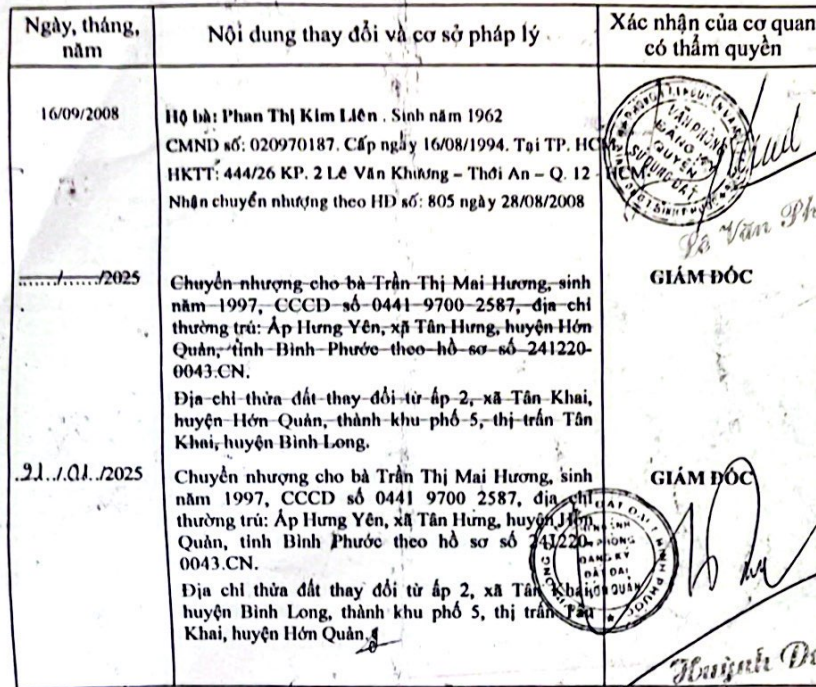 Ngày, tháng, năm
Nội dung thay đổi và cơ sở pháp lý
Xác nhận của cơ quan có thẩm quyền
16/09/2008
Hộ bà: Phan Thị Kim Liên . Sinh năm 1962
CMND số: 020970187. Cấp ngày 16/08/1994. Tại TP. HCM
HKTT: 444/26 KP. 2 Lê Văn Khương – Thới An – Q. 12 - HCM
Nhận chuyển nhượng theo HĐ số: 805 ngày 28/08/2008
VĂN PHÒNG
ĐĂNG KÝ
QUYỀN
SỬ DỤNG ĐẤT
Lê Văn Ph
....../....../2025
Chuyển nhượng cho bà Trần Thị Mai Hương, sinh
năm 1997, CCCD số 0441 9700 2587, địa chỉ
thường trú: Ấp Hưng Yên, xã Tân Hưng, huyện Hớn
Quản, tỉnh Bình Phước theo hồ sơ số 241220-
0043.CN.
Địa chỉ thửa đất thay đổi từ ấp 2, xã Tân Khai,
huyện Hớn Quản, thành khu phố 5, thị trấn Tân
Khai, huyện Bình Long.
GIÁM ĐỐC
21/01/2025
Chuyển nhượng cho bà Trần Thị Mai Hương, sinh
năm 1997, CCCD số 0441 9700 2587, địa chỉ
thường trú: Ấp Hưng Yên, xã Tân Hưng, huyện Hớn
Quản, tỉnh Bình Phước theo hồ sơ số 241220-
0043.CN.
Địa chỉ thửa đất thay đổi từ ấp 2, xã Tân Khai,
huyện Bình Long, thành khu phố 5, thị trấn Tân
Khai, huyện Hớn Quản.
GIÁM ĐỐC
CHI NHÁNH
VĂN PHÒNG
ĐĂNG KÝ
ĐẤT ĐAI
HỚN QUẢN
Huỳnh